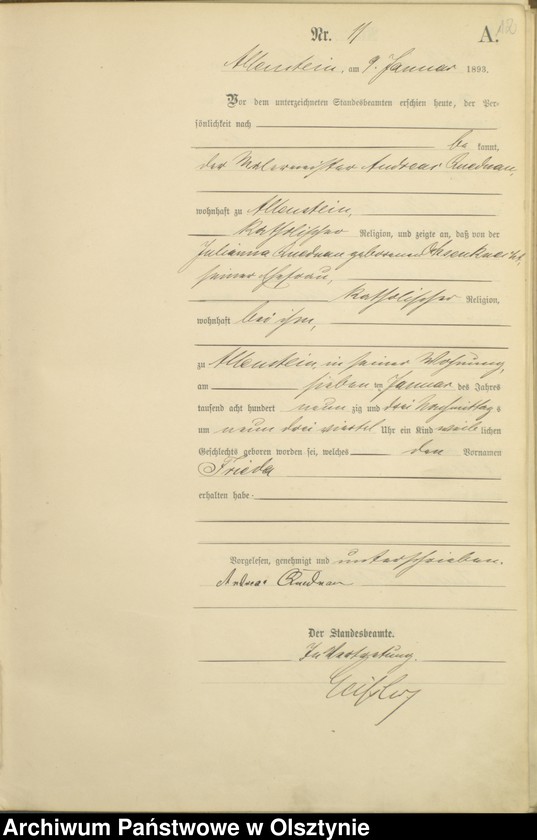 Nr. 11 A.
Allenstein, am 9. Januar 1893.
Vor dem unterzeichneten Standesbeamten erschien heute, der Per-
sönlichkeit nach
be kannt,
der Malermeister Andreas Quednau,
wohnhaft zu Allenstein,
katholischer Religion, und zeigte an, daß von der
Julianna Quednau geborenen
seiner Ehefrau,
katholischer Religion,
wohnhaft bei ihm,
zu Allenstein, in seiner Wohnung,
am sieben ten Januar des Jahres
tausend acht hundert neun zig und drei Nachmittag s
um neun drei viertel Uhr ein Kind weib lichen
Geschlechts geboren worden sei, welches den Vornamen
Frieda
erhalten habe
Vorgelesen, genehmigt und unterschrieben.
Andreas Quednau
Der Standesbeamte.
In Vertretung.
Archiwum Państwowe w Olsztynie